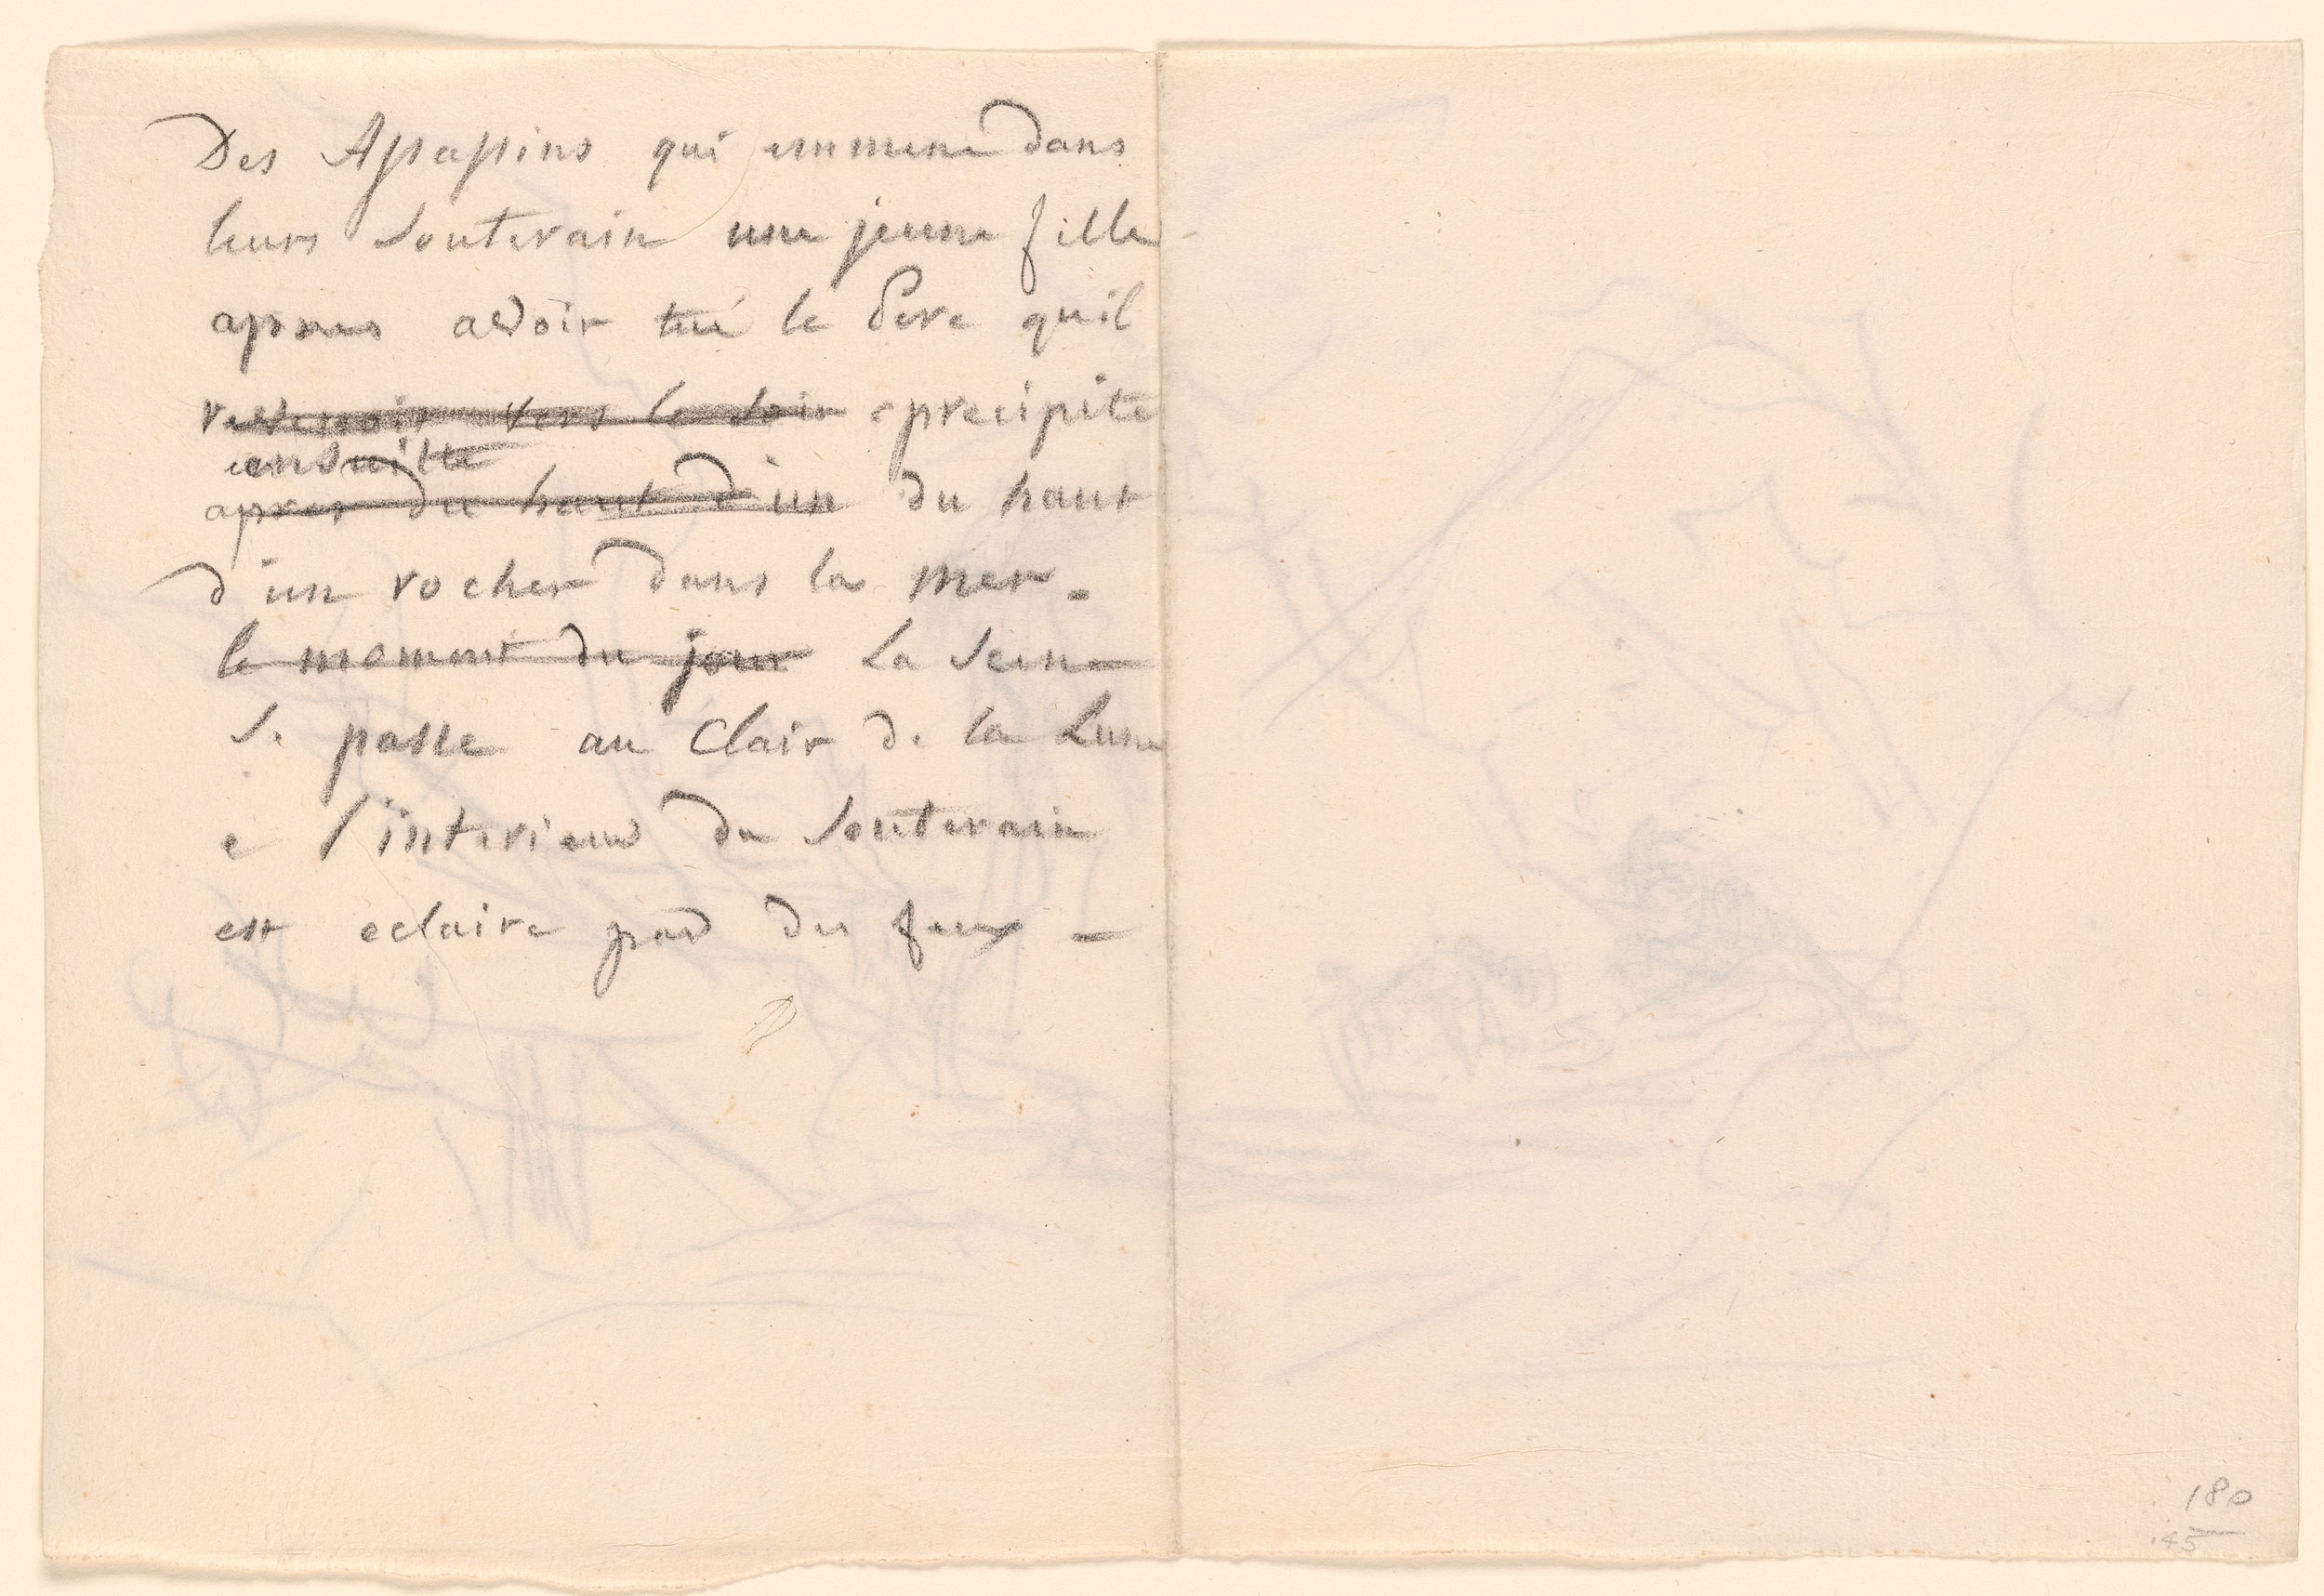 Des Assassins qui emmene dans
leurs Souterain une jeune fille
apres avoir tué le Pere quil
vers le soir precipite
ensuitte
apres du haut d'un du haut
d'un rocher dans la mer.
le moment du jour La Sene
Se passe au Clair de la Lune
e l'interieur du Souterain
est eclaire par des feux -
180
45